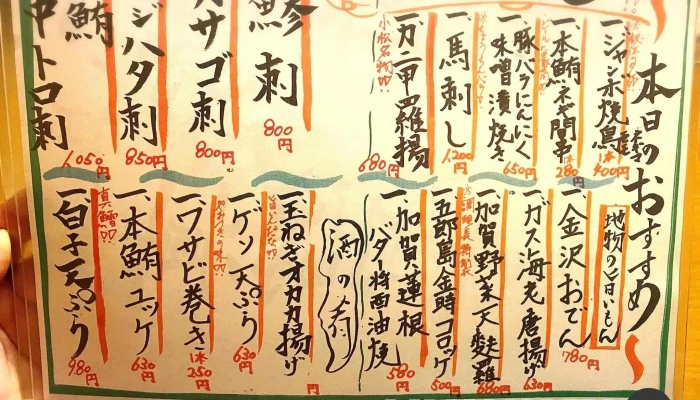 本日のおすすめ
一、ジャンボ焼鳥
1本400円
一、本鮪ネギ間串
1本280円
一、豚バラにんにく
味噌漬焼き
650円
一、馬刺し
1,200円
小松名物!!
一、カニ甲羅揚
680円
鯵刺
800円
カサゴ刺
800円
ジハタ刺
850円
鮪
中トロ刺
1,050円
地物の旨いもん
一、金沢おでん
780円
ガス海老唐揚げ
630円
一、加賀野菜天麩羅
680円
一、五郎島金時コロッケ
500円
一、加賀蓮根
バター醤油焼
580円
酒の肴
一、玉ねぎオカカ揚げ
円
一、ゲソ天ぷり
630円
一、ワサビ巻き
1本250円
一、本鮪ユッケ
630円
真鱈!!
一、白子天ぷり
980円